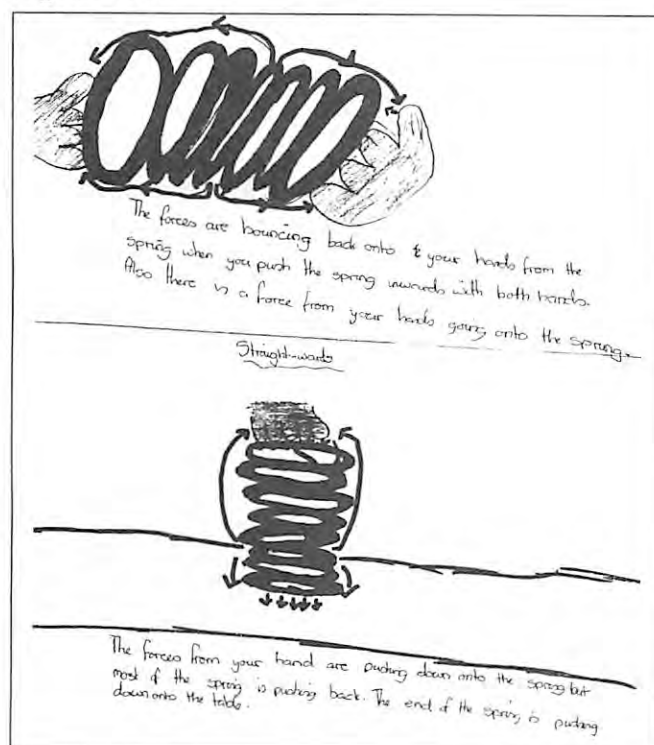 The forces are bouncing back onto your hands from the
spring when you push the spring inwards with both hands.
Also there is a force from your hands going onto the spring.
Straight-wards
The forces from your hand are pushing down onto the spring but
most of the spring is pushing back. The end of the spring is pushing
down onto the table.